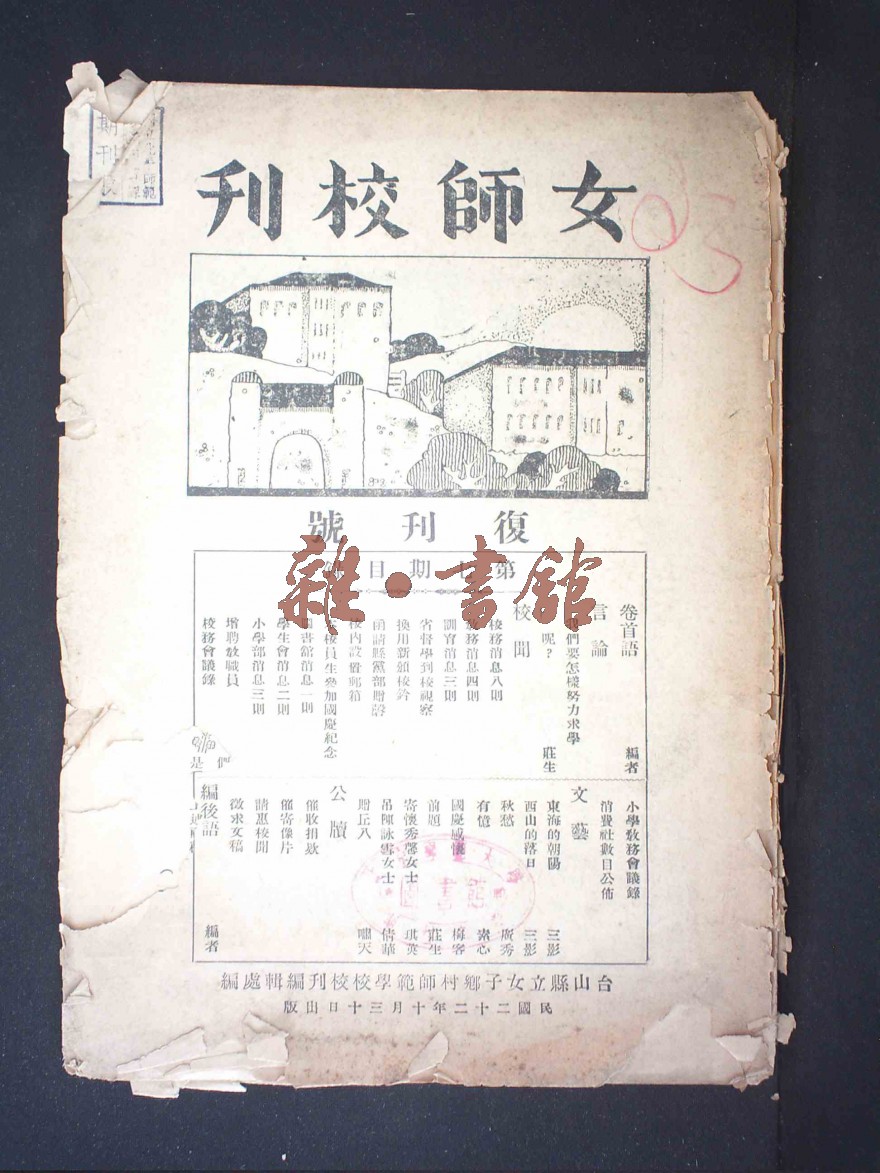 女師校刊
復刊號
第七期目錄
卷首語 編者
言論
我們要怎樣努力求學
呢? 莊生
校聞
校務消息八則
教務消息四則
訓育消息三則
省督學到校視察
換用新頒校鈐
函請縣黨部贈磅
校內設置郵箱
校員生參加國慶紀念
圖書舘消息一則
學生會消息二則
小學部消息三則
增聘教職員
校務會議錄
小學教務會議錄
消費社數目公佈
文藝
東海的朝陽 三影
西山的落日 三影
秋愁 廣秀
有憶 素心
國慶感懷 梅客
前題 莊生
寄懷秀馨女士 琪英
吊陳詠雪女士 倩華
贈丘八 嘯天
公牘
催收捐欵
催寄像片
請惠校聞
徵求文稿
編後語 編者
台山縣立女子鄉村師範學校校刊編輯處編
民國二十二年十月三十日出版
期刊
雜·書舘